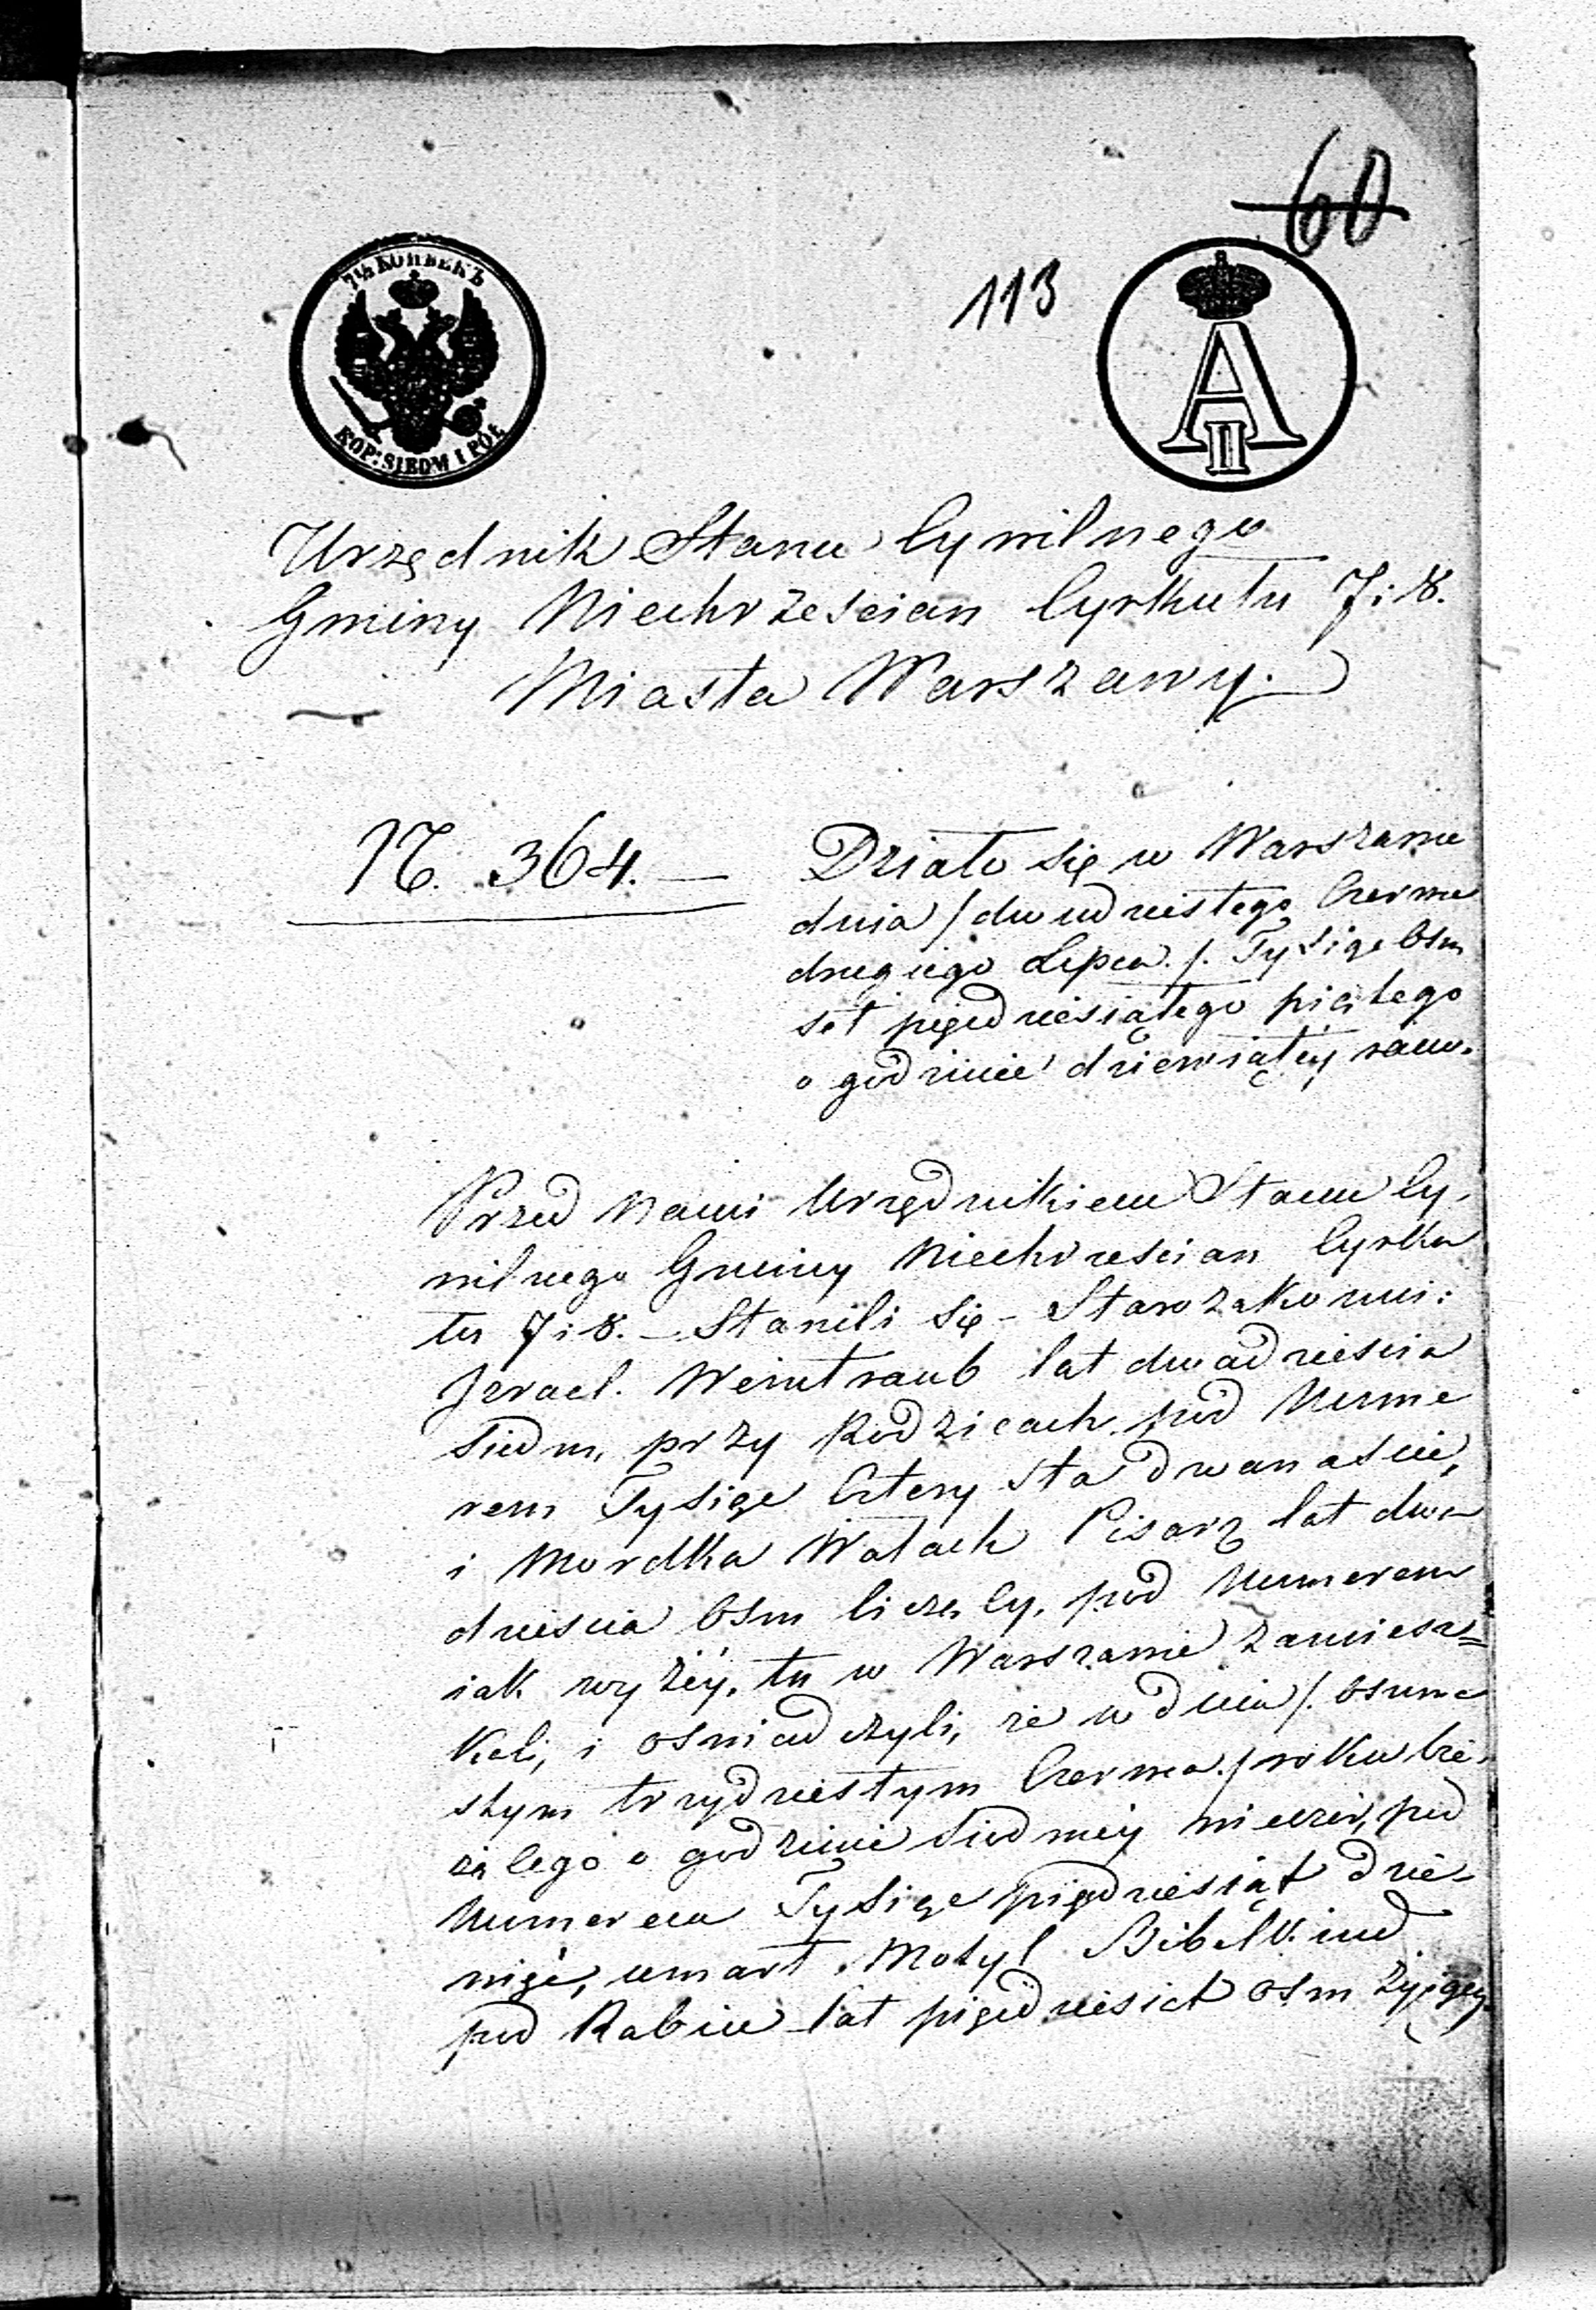 60
113
7½ КОПѢЕКЪ
KOP: SIEDM I PÓŁ
A II
Urzędnik Stanu Cywilnego
Gminy Niechrześcian Cyrkułu 7 i 8.
Miasta Warszawy.
N. 364.
Działo się w Warszawie
dnia /dwudziestego Czerwca
drugiego Lipca./. Tysiąc Ośm
set pięćdziesiątego piątego
o godzinie dziewiątéy rano.
Przed Nami Urzędnikiem Stanu Cy-
wilnego Gminy Niechrześcian Cyrku
łu 7 i 8. – Stawili się – Starozakonni:
Izrael. Weintraub lat dwadzieścia
siedm, przy Rodzicach pod Nume
rem Tysiąc Cztery sta dwanaście,
i Mordka Wałach Pisarz lat dwa
dzieścia Ośm liczący, pod Numerem
iak wyżéy, tu w Warszawie zamiesz=
kali, i oświadczyli, że w dniu /. Osiemna
stym trzydziestym Czerwca ./ roku bie-
żącego o godzinie siódméy wieczór, pod
Numerem Tysiąc pięćdziesiąt dzie-
więć, umarł Motyl Bibelkind
pod Rabin lat pięćdziesiąt ośm żyjący